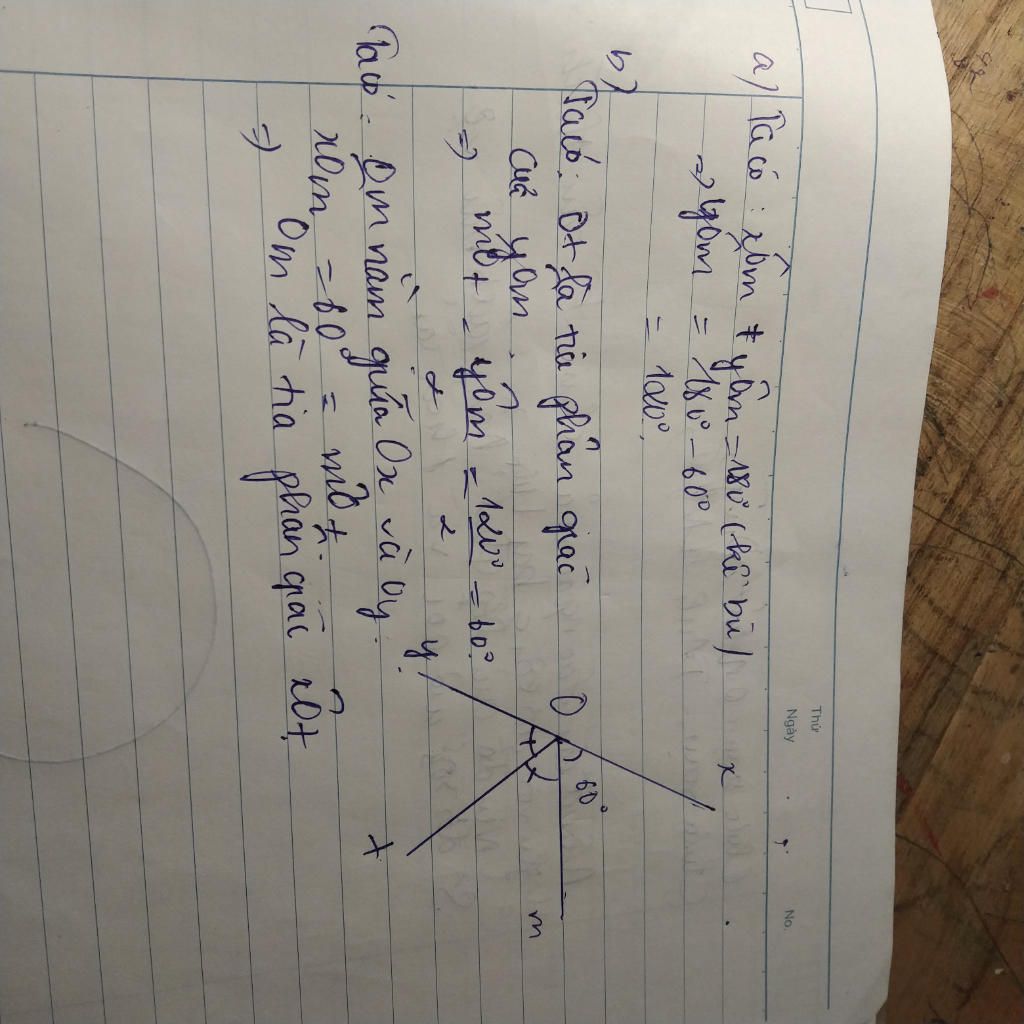 Thứ
Ngày
No.
a) Ta có : xÔm + yÔm = 180° (kề bù)
=> yÔm = 180° - 60°
= 120°.
b)
Ta có: Ot là tia phân giác
của yÔm.
=> mÔt = yÔm/2 = 120°/2 = 60°.
Ta có : Om nằm giữa Ox và Oy.
xÔm = 60° = mÔt.
=> Om là tia phân giác xÔt.
x
O
60°
y
m
t